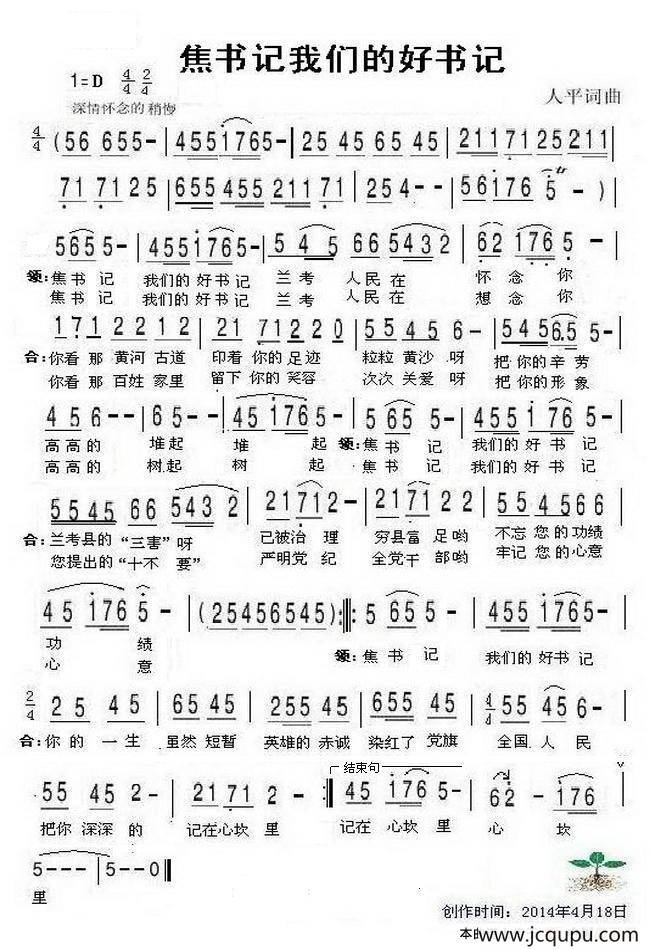 焦书记我们的好书记
1=D 4/4 2/4
人平词曲
深情怀念的 稍慢
4/4 (56 655- | 4551765- | 25 45 65 45 | 21171 25211 |
7171 25 | 655 455 211 71 | 254-- | 56176 5 - )
5655- | 4551765- | 5 45 665432 | 62 176 5-
领:焦书记 我们的好书记 兰考 人民在 怀念你
焦书记 我们的好书记 兰考 人民在 想念你
171 2212 | 21 71220 | 55456 | 545 6.55
合:你看那 黄河古道 印着 你的足迹 粒粒黄沙呀 把你的辛劳
你看那 百姓家里 留下 你的笑容 次次关爱呀 把你的形象
456-- | 65-- | 451765 | 5 655- | 4551765-
高高的 堆起 堆 起 领:焦书记 我们的好书记
高高的 树起 树 起 焦书记 我们的好书记
5545 66 5432 | 21712- | 217122 | 554566
合:兰考县的“三害”呀 已被治理 穷县富足哟 不忘您的功绩
您提出的“十不要” 严明党纪 全党干部哟 牢记您的心意
45 176 5- | (25456545) :||: 5 655- | 4551765-
功 绩 领:焦书记 我们的好书记
心 意
2/4 25 45 | 65 45 | 255 45 | 655 45 | 4/4 55 456-
合:你的一生 虽然短暂 英雄的赤诚 染红了党旗 全国人民
结束句
55 452- | 21712 - :|| 45 1765- | 62 - 176
把你深深的 记在心坎里 记在心坎里 心 坎
5--- | 5--0 ||
里
创作时间：2014年4月18日
www.jcqupu.com